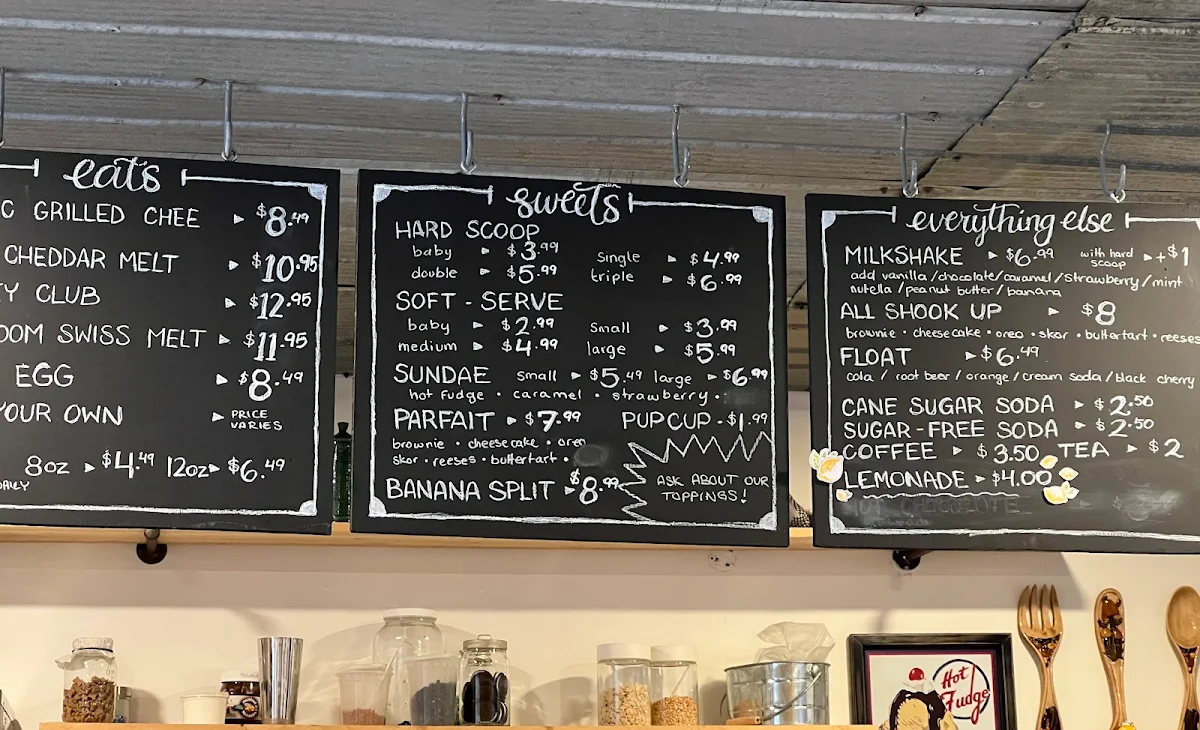 eats
C GRILLED CHEE ▸ $8.49
CHEDDAR MELT ▸ $10.95
Y CLUB ▸ $12.95
OOM SWISS MELT ▸ $11.95
EGG ▸ $8.49
YOUR OWN ▸ PRICE VARIES
8oz ▸ $4.49 12oz ▸ $6.49
DAILY
sweets
HARD SCOOP
baby ▸ $3.99 Single ▸ $4.99
double ▸ $5.99 triple ▸ $6.99
SOFT-SERVE
baby ▸ $2.99 Small ▸ $3.99
medium ▸ $4.99 large ▸ $5.99
SUNDAE small ▸ $5.49 large ▸ $6.99
hot fudge • caramel • strawberry •
PARFAIT ▸ $7.99 PUPCUP - $1.99
brownie • cheesecake • oreo
skor • reeses • buttertart •
BANANA SPLIT ▸ $8.99
ASK ABOUT OUR
TOPPINGS!
everything else
MILKSHAKE ▸ $6.99 with hard scoop ▸ +$1
add vanilla/chocolate/caramel/strawberry/mint
nutella/peanut butter/banana
ALL SHOOK UP ▸ $8
brownie • cheesecake • oreo • skor • buttertart • reeses
FLOAT ▸ $6.49
cola / root beer / orange / cream soda / black cherry
CANE SUGAR SODA ▸ $2.50
SUGAR-FREE SODA ▸ $2.50
COFFEE ▸ $3.50 TEA ▸ $2
LEMONADE ▸ $4.00
HOT CHOCOLATE
Hot
Fudge